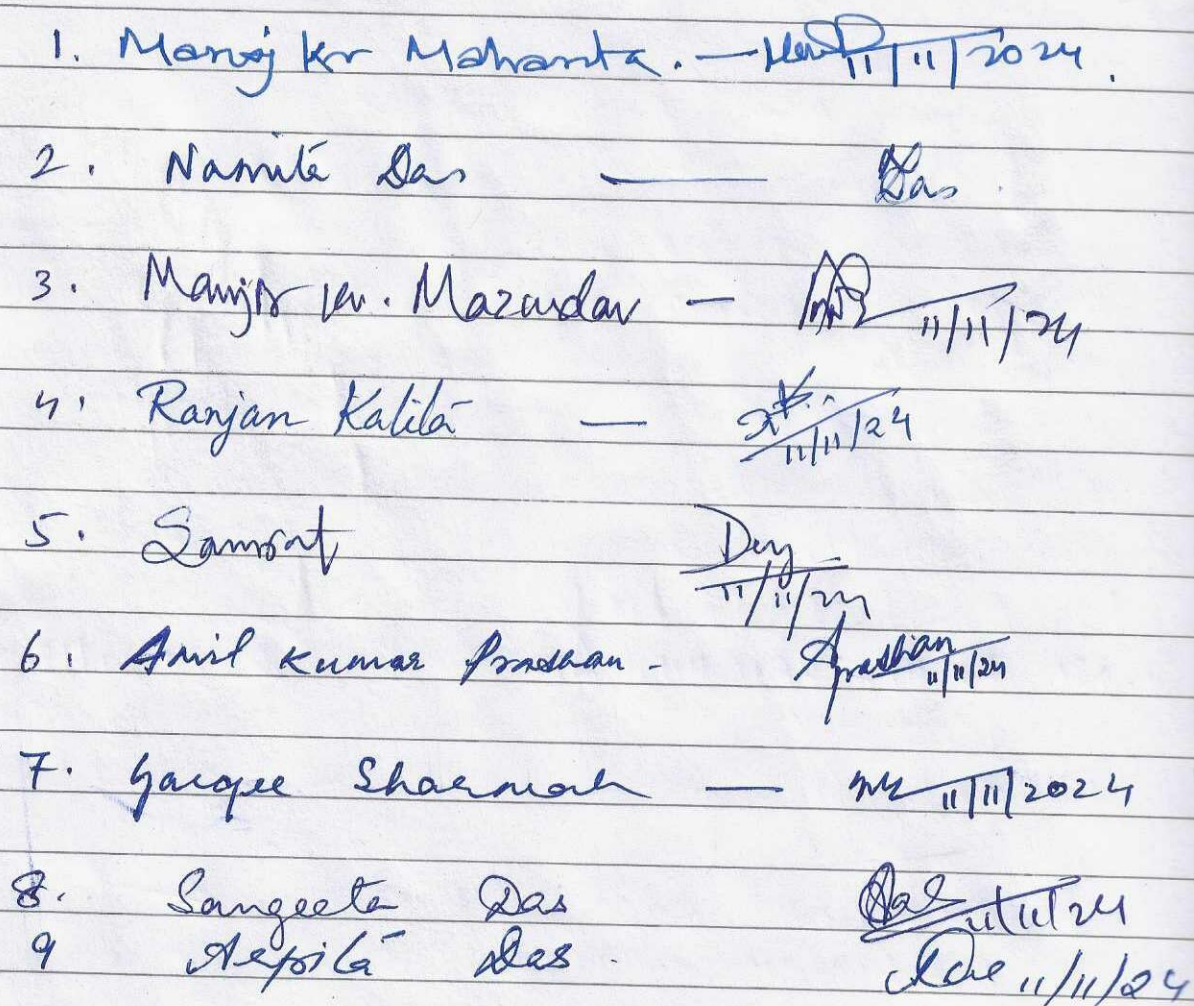 1. Manoj Kr Mahanta. — 11/11/2024.
2. Namita Das — Das
3. Kr. Mazumdar — 11/11/24
4. Ranjan Kalita — 11/11/24
5. Samrat Dey 11/11/24
6. Anil Kumar Pradhan - Apradhan 11/11/24
7. Gargee Sharmah — 11/11/2024
8. Sangeeta Das Das 11/11/24
9 Arpita Das 11/11/24